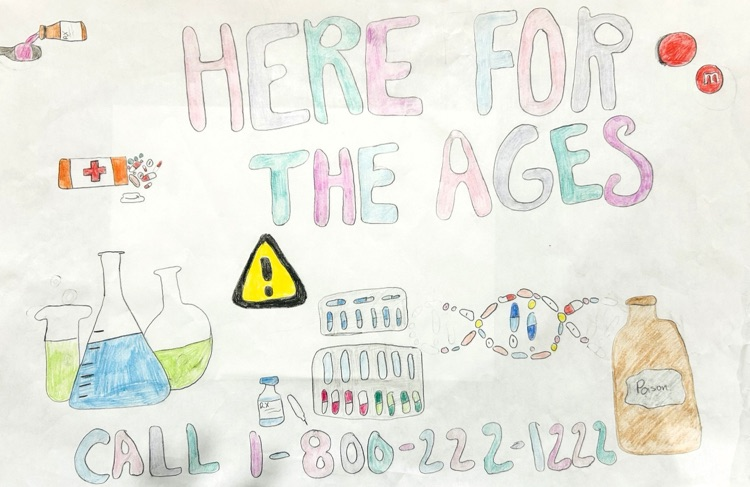 HERE FOR
THE AGES
m
Rx
Poison
CALL 1-800-222-1222